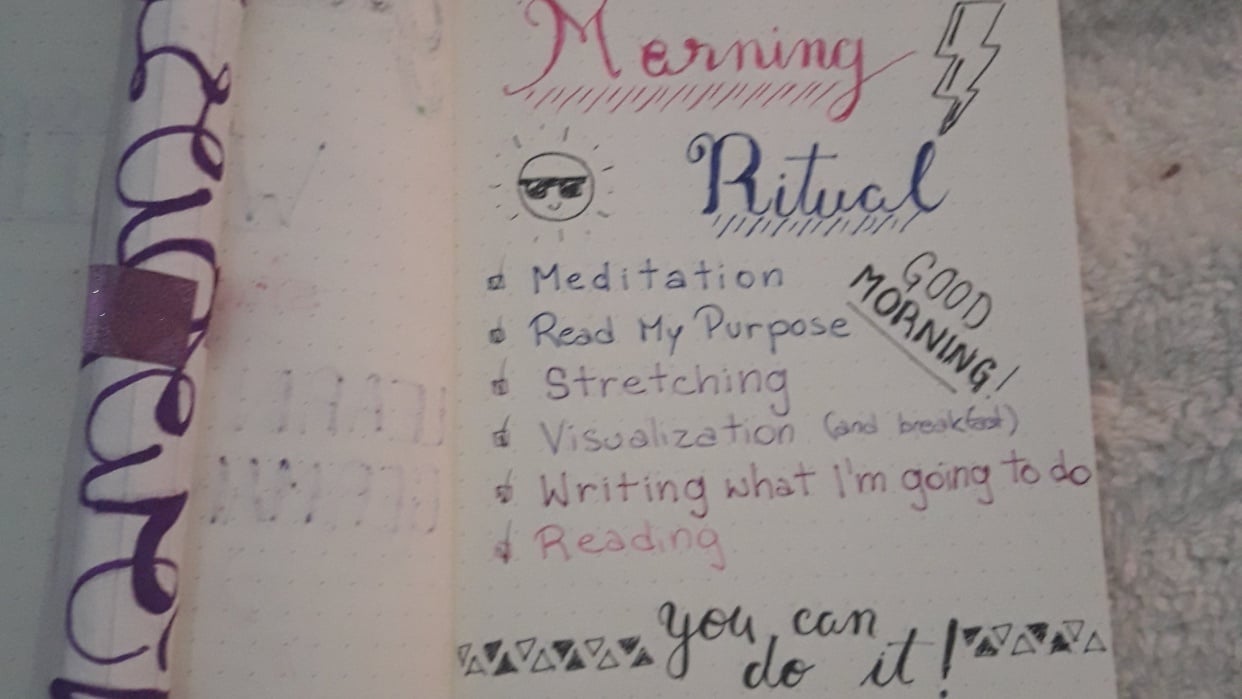 Morning
Ritual
Meditation
GOOD
MORNING!
Read My Purpose
Stretching
Visualization (and breakfast)
Writing what I'm going to do
Reading
you can
do it!